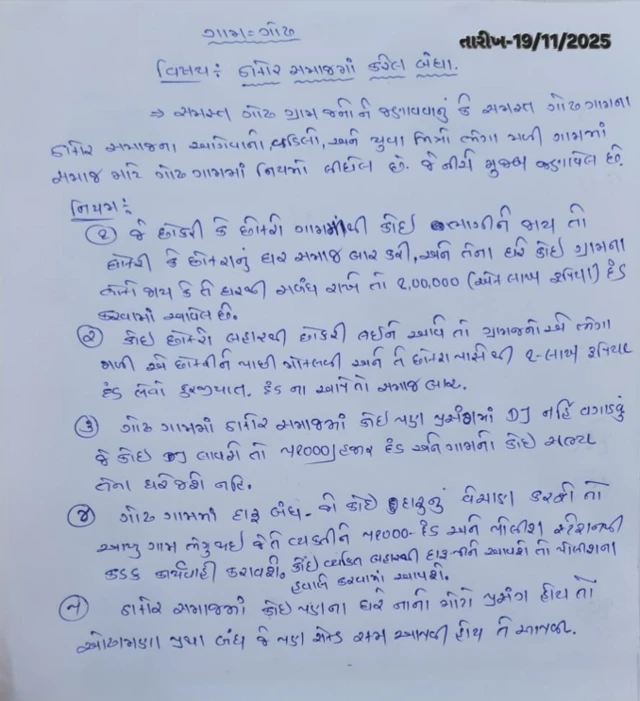 ગામ=ગોઢ
તારીખ-19/11/2025
વિષય: ઠાકોર સમાજમાં કરેલ બંધા.
⇒ સમસ્ત ગોઢ ગ્રામજનોને જણાવવાનું કે સમસ્ત ગોઢગામના
ઠાકોર સમાજના આગેવાનો, વડિલો, અને યુવા મિત્રો ભેગા મળી ગામમાં
સમાજ માટે ગોઢગામમાં નિયમો લીધેલ છે. જે નીચે મુજબ જણાવેલ છે.
નિયમ:
૧ જે છોકરી કે છોકરો ગામમાંથી કોઈ ભાગીને જાય તો
છોકરી કે છોકરાનું ઘર સમાજ બાર કરી, અને તેના ઘરે કોઈ ગ્રામના
લોકો જાય કે તે ઘરથી સબંધ રાખે તો ૧,૦૦,૦૦૦ (એક લાખ રૂપિયા) દંડ
કરવામાં આવેલ છે.
૨ કોઈ છોકરો બહારથી છોકરી લઈને આવે તો ગ્રામજનો એ ભેગા
મળી એ છોકરીને પાછી મોકલવી અને તે છોકરા પાસેથી ૧-લાખ રૂપિયા
દંડ લેવો ફરજીયાત. દંડ ના આપે તો સમાજ બાર.
૩ ગોઢ ગામમાં ઠાકોર સમાજમાં કોઈ પણ પ્રસંગમાં DJ નહિ વગાડવું
જે કોઈ DJ લાવશે તો ૫૧૦૦૦/હજાર દંડ અને ગામનો કોઈ સભ્ય
તેના ઘરે જશે નહિ.
૪ ગોઢ ગામમાં દારૂ બંધ - જે કોઈ દારૂનું વેચાણ કરશે તો
આખુ ગામ ભેગુ થઈ જે તે વ્યક્તીને ૫૧૦૦૦- દંડ અને પોલીસ સ્ટેશનથી
કડક કાર્યવાહી કરાવશે. કોઈ વ્યક્તિ બહારથી દારૂ પીને આવશે તો પોલીસના
હવાલે કરવામાં આવશે.
૫ ઠાકોર સમાજમાં કોઈ પણના ઘરે નાનો મોટો પ્રસંગ હોય તો
ઓઢામણા પ્રથા બંધ જે પણ રોકડ રકમ આપવી હોય તે આપવી.